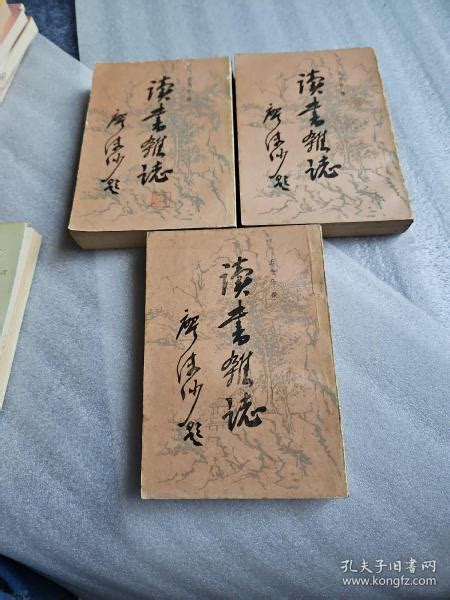 讀書雜誌
廖沫沙題
讀書雜誌
廖沫沙題
王念孫 撰
讀書雜誌
廖沫沙題
孔夫子旧书网
www.kongfz.com